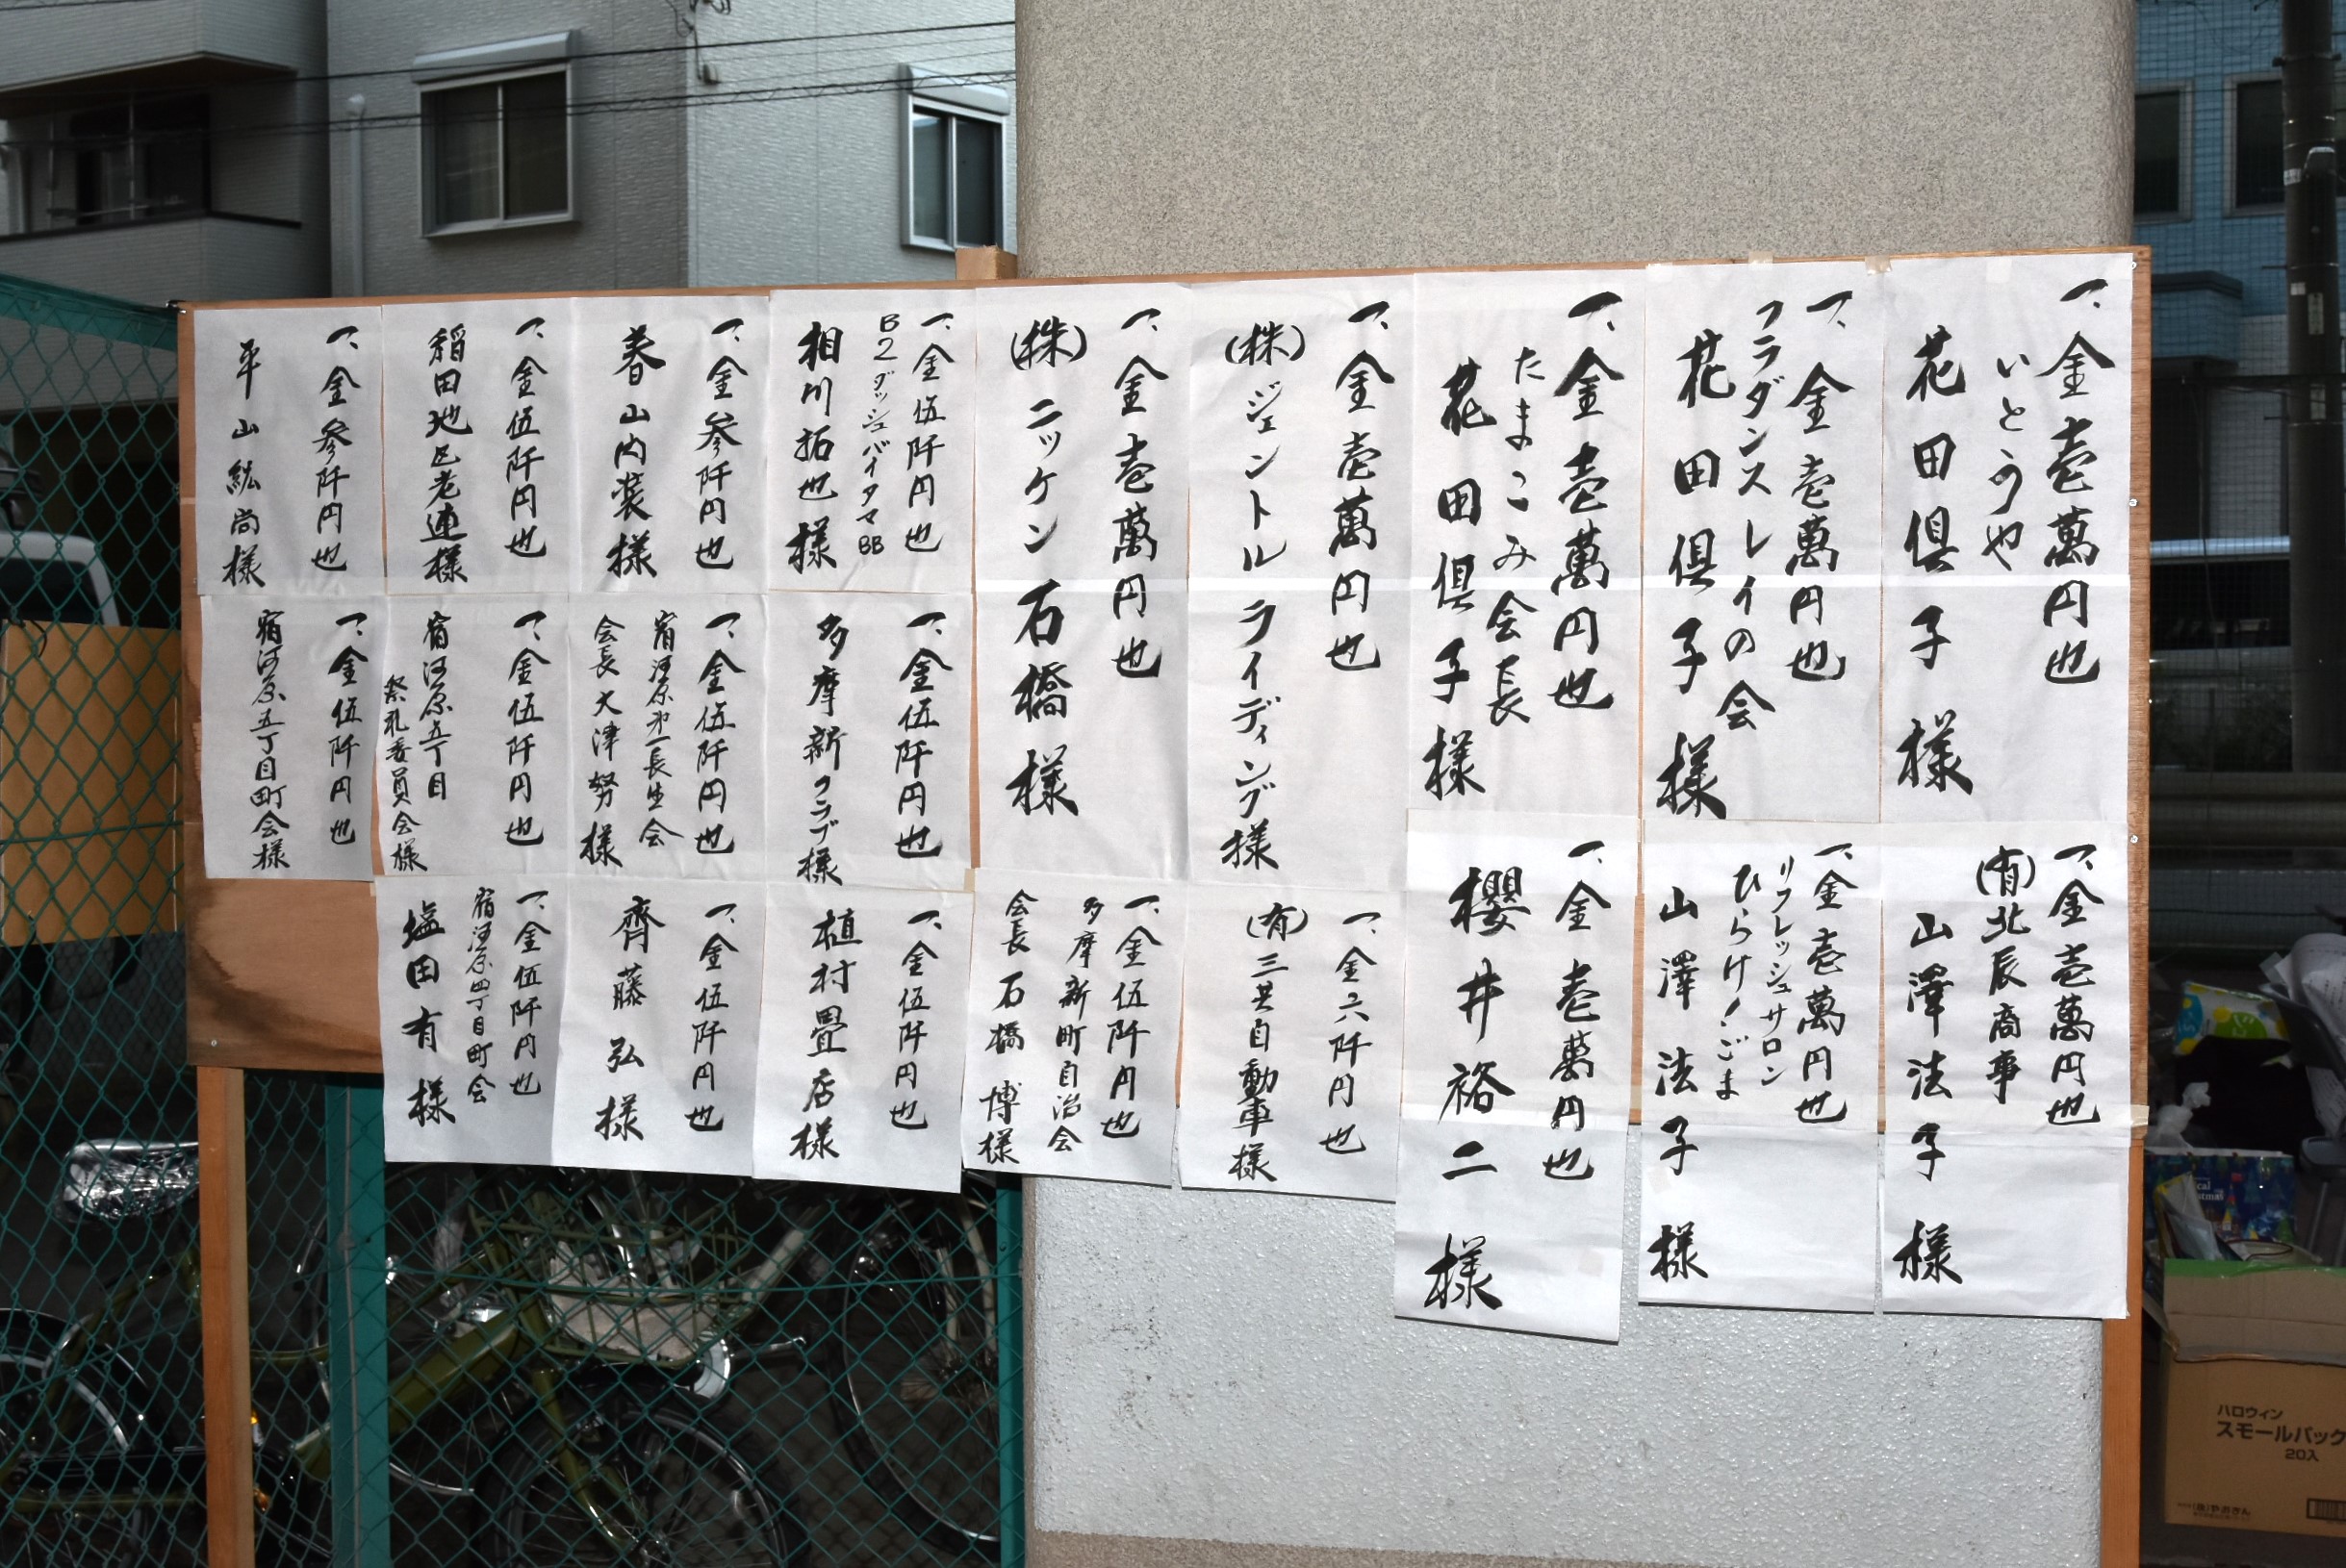 一、金壱萬円也
いとうや
花田倶子様
一、金壱萬円也
フラダンスレイの会
花田倶子様
一、金壱萬円也
たまこみ会長
花田倶子様
一、金壱萬円也
(株)ジェントルライディング様
一、金壱萬円也
(株)ニッケン石橋様
一、金伍阡円也
B2ダッシュバイタマBB
相川拓也様
一、金参阡円也
春山内装様
一、金伍阡円也
稲田地区老連様
一、金参阡円也
平山紘尚様
一、金伍阡円也
多摩新クラブ様
一、金伍阡円也
宿河原第一長生会
会長大津努様
一、金伍阡円也
宿河原五丁目
祭礼委員会様
一、金伍阡円也
宿河原五丁目町会様
一、金壱萬円也
(有)北辰商事
山澤法子様
一、金壱萬円也
リフレッシュサロン
ひらけ!ごま
山澤法子様
一、金壱萬円也
櫻井裕二様
一、金六阡円也
(有)三共自動車様
一、金伍阡円也
多摩新町自治会
会長石橋博様
一、金伍阡円也
植村畳店様
一、金伍阡円也
齊藤弘様
一、金伍阡円也
宿河原四丁目町会
塩田有様
ハロウィン
スモールパック
20入